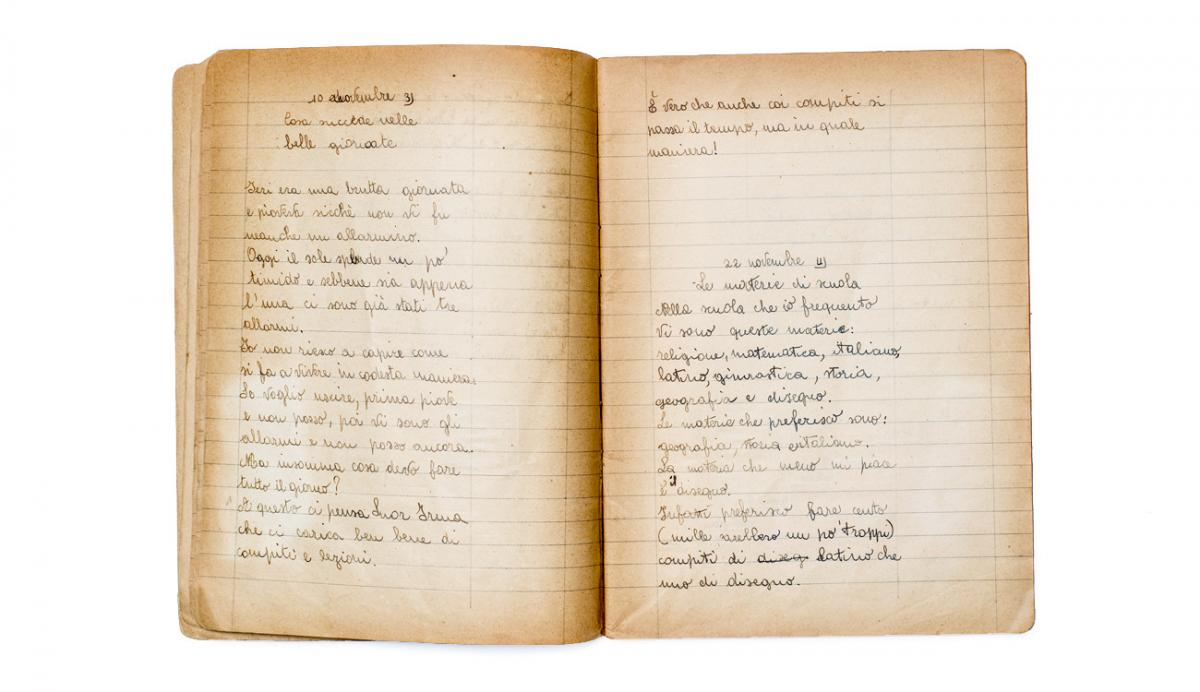 10 novembre 3)
Cosa succede nelle
belle giornate
Ieri era una brutta giornata
e pioveva sicchè non vi fu
neanche un allarmino.
Oggi il sole splende un po'
timido e sebbene sia appena
l'una ci sono già stati tre
allarmi.
Io non riesco a capire come
si fa a vivere in codesta maniera.
Io voglio uscire, prima piove
e non posso, poi vi sono gli
allarmi e non posso ancora.
Ma insomma cosa devo fare
tutto il giorno?
A questo ci pensa Suor Irma
che ci carica ben bene di
compiti e lezioni.
È vero che anche coi compiti si
passa il tempo, ma in quale
maniera!
22 novembre 4)
Le materie di scuola
Nella scuola che io frequento
vi sono queste materie:
religione, matematica, italiano,
latino, ginnastica, storia,
geografia e disegno.
Le materie che preferisco sono:
geografia, storia e italiano.
La materia che meno mi piace
è il disegno.
Infatti preferisco fare cento
(mille sarebbero un po' troppi)
compiti di diseg latino che
uno di disegno.